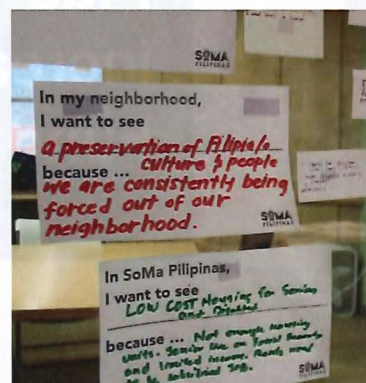 SOMA
PILIPINAS
In my neighborhood,
I want to see
a preservation of Filipin/o
culture & people
because ...
we are consistently being
forced out of our
neighborhood.
SOMA
PILIPINAS
In SoMa Pilipinas,
I want to see
LOW COST Housing for Seniors
and Disabled
because ... Not enough housing
units. Senior live on
and limited income. Rents need
to be
SOMA